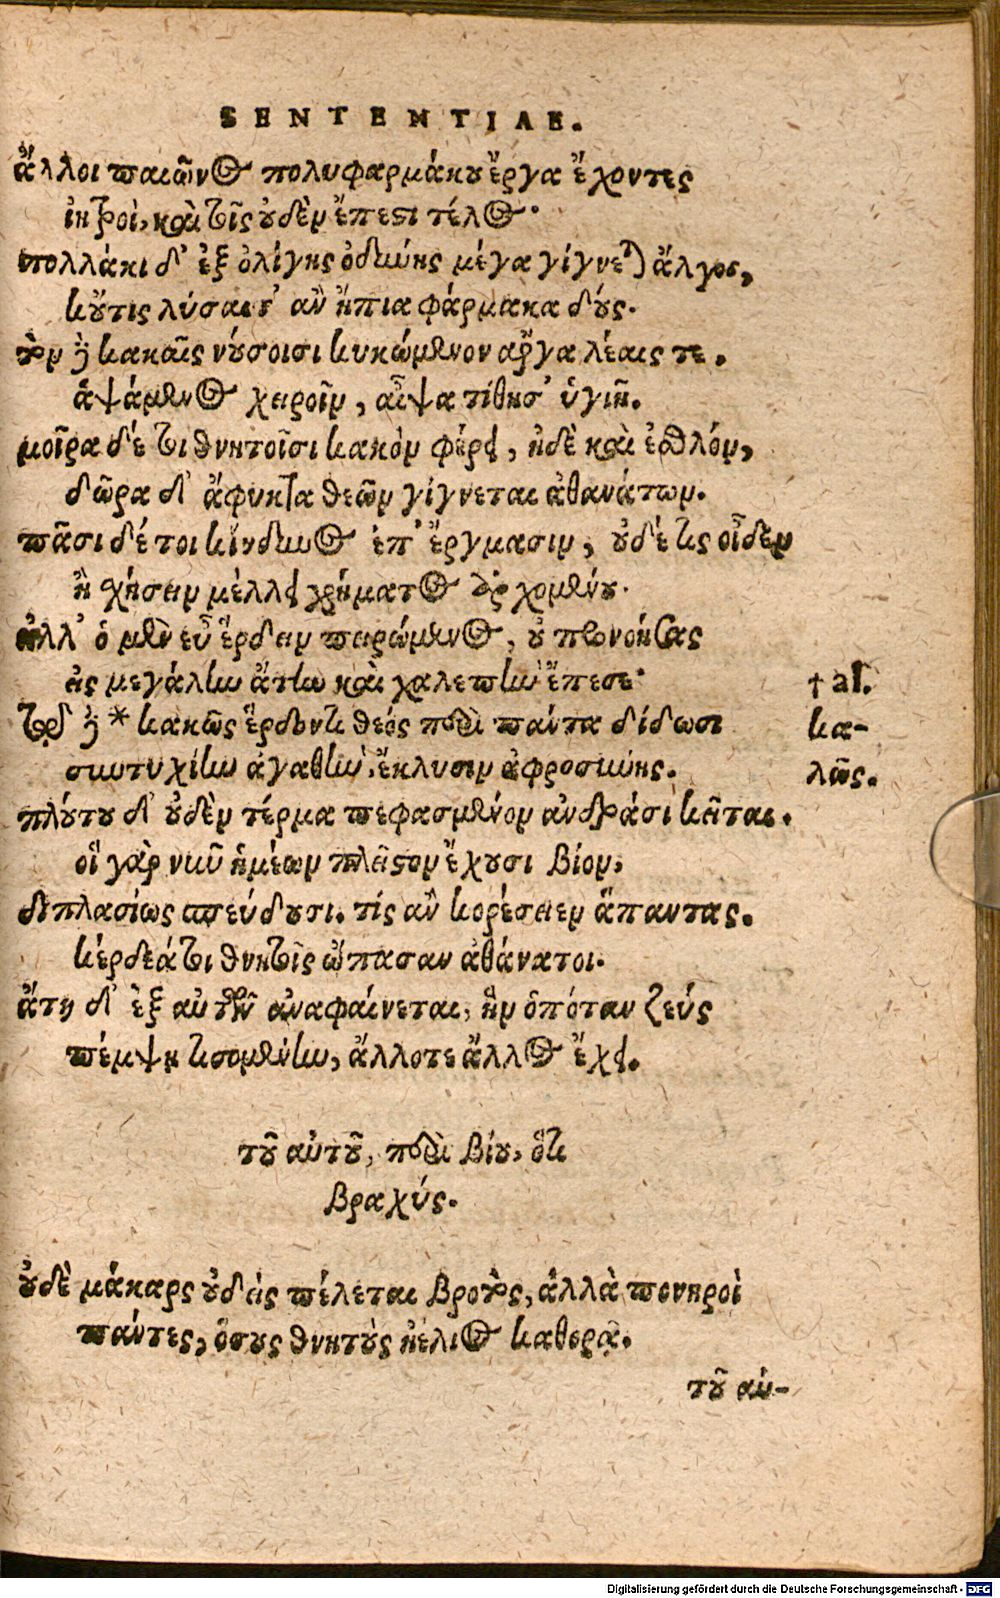 SENTENTIAE.
ἄλλοι παιῶνος πολυφαρμάκου ἔργα ἔχοντες
ἰητροὶ, καὶ τοῖς οὐδὲν ἔπεστι τέλος·
πολλάκι δ' ἐξ ὀλίγης ὀδύνης μέγα γίγνεται ἄλγος,
κοὔτις λύσαιτ' ἂν ἤπια φάρμακα δούς.
τὸν δὲ κακαῖς νούσοισι κυκώμενον ἀργαλέαις τε.
ἁψάμενος χειροῖν, αἶψα τίθησ' ὑγιῆ.
μοῖρα δέ τοι θνητοῖσι κακὸν φέρει, ἠδὲ καὶ ἐσθλόν,
δῶρα δ' ἄφυκτα θεῶν γίγνεται ἀθανάτων.
πᾶσι δέ τοι κίνδυνος ἐπ' ἔργμασιν, οὐδέ τις οἶδεν
ἢ σχήσειν μέλλει χρήματος ἀρχομένου.
ἀλλ' ὁ μὲν εὖ ἔρδειν πειρώμενος, οὐ προνοήσας
εἰς μεγάλην ἄτην καὶ χαλεπὴν ἔπεσε·
τῷ δὲ * κακῶς ἔρδοντι θεός περὶ πάντα δίδωσι
συντυχίην ἀγαθὴν, ἔκλυσιν ἀφροσύνης.
† al.
κα-
λῶς.
πλούτου δ' οὐδὲν τέρμα πεφασμένον ἀνδράσι κεῖται.
οἳ γὰρ νῦν ἡμέων πλεῖστον ἔχουσι βίον,
διπλασίως σπεύδουσι. τίς ἂν κορέσειεν ἅπαντας.
κέρδεά τοι θνητοῖς ὤπασαν ἀθάνατοι.
ἄτη δ' ἐξ αὐτῶν ἀναφαίνεται, ἣν ὁπόταν ζεύς
πέμψῃ τισομένην, ἄλλοτε ἄλλος ἔχει.
τοῦ αὐτοῦ, περὶ βίου, ὅτι
βραχύς.
οὐδὲ μάκαρς οὐδεὶς πέλεται βροτὸς, ἀλλὰ πονηροὶ
πάντες, ὅσους θνητοὺς ἠέλιος καθορᾷ.
τοῦ αὐ-
Digitalisierung gefördert durch die Deutsche Forschungsgemeinschaft - DFG